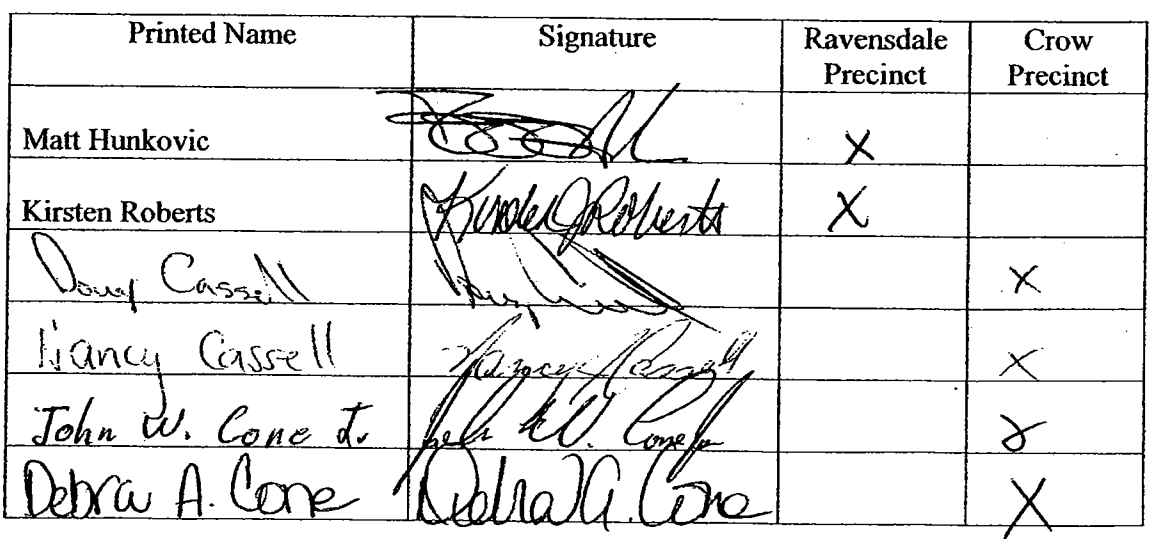 Printed Name Signature Ravensdale Precinct Crow Precinct
Matt Hunkovic X
Kirsten Roberts Kirsten J Roberts X
Doug Cassell X
Nancy Cassell Nancy Cassell X
John W. Cone Jr. John W. Cone Jr X
Debra A. Cone Debra A. Cone X